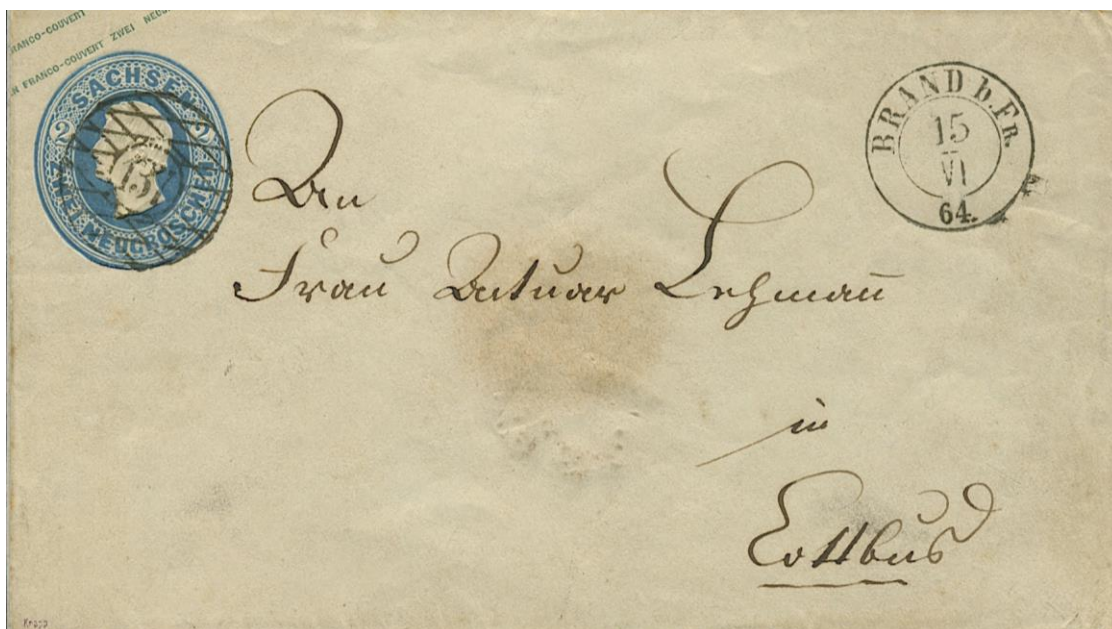 FRANCO-COUVERT
FRANCO-COUVERT ZWEI NEUG
SACHSEN
2 2
ZWEI NEUGROSCHEN
BRAND b. FR.
15
VI
64.
An
Frau Actuar Lehman̄
in
Cottbus